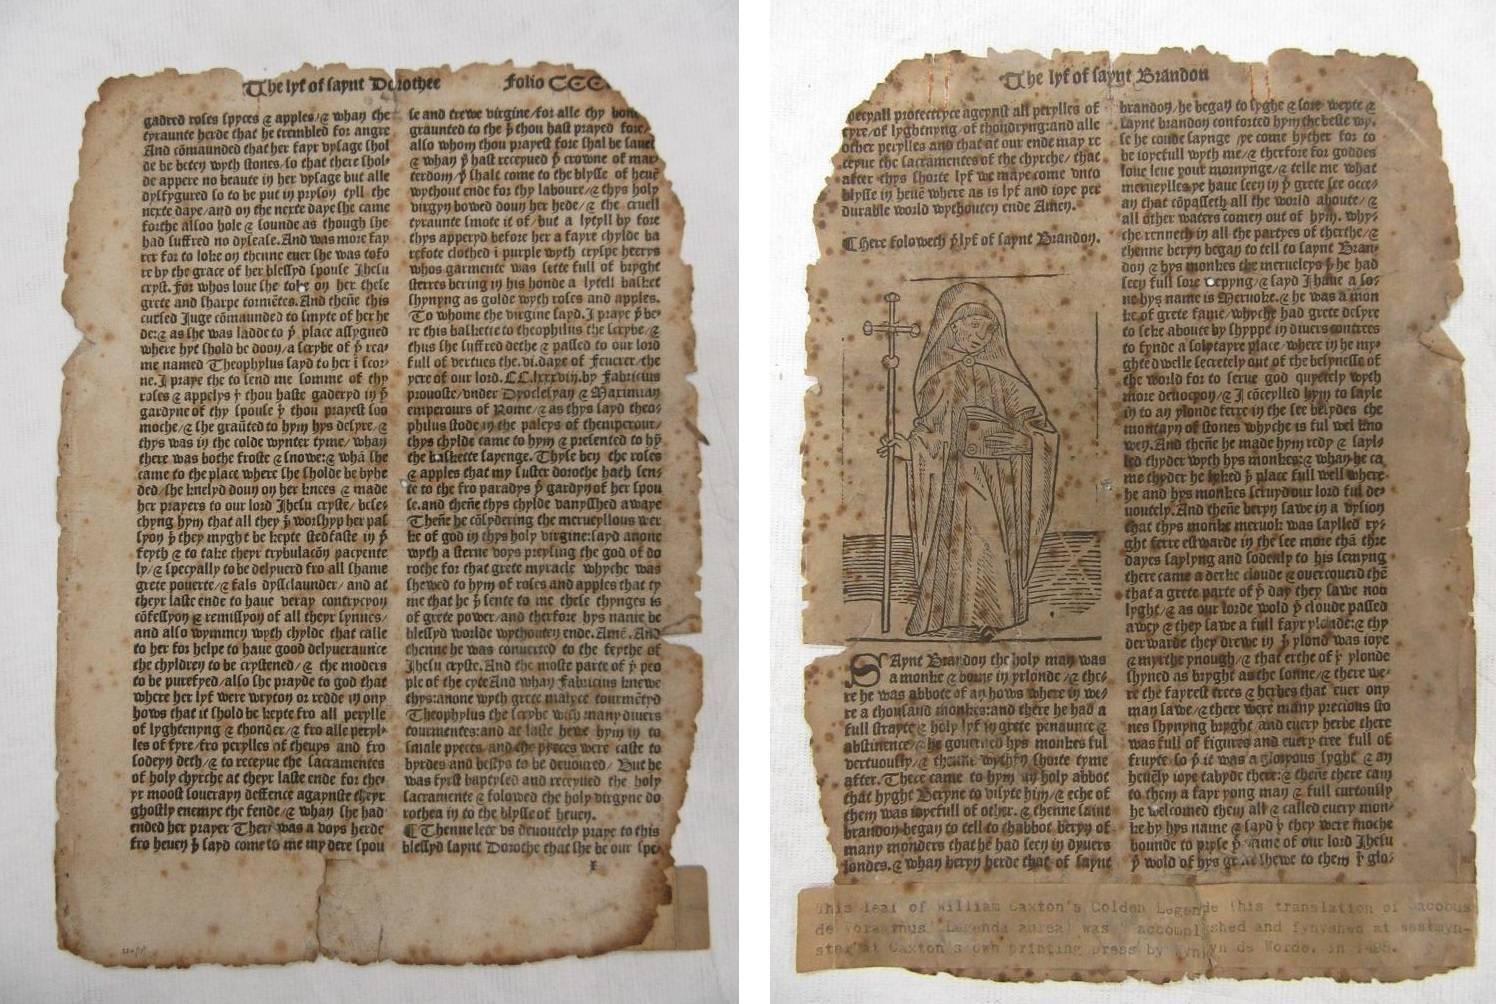 The lyf of saynt Dorothee Folio CCC
gadred roses spyces & apples/& whan the
tyraunte herde that he trembled for angre
And cōmaunded that her fayr vysage shol
de be beten wyth stones/so that there shol-
de appere no beaute in her vysage but alle
dysfygured so to be put in pryson tyll the
nexte daye/and on the nexte daye she came
forthe alsoo hole & sounde as though she
had suffred no dysease. And was more fay
rer for to loke on thenne euer she was tofo
re by the grace of her blessyd spouse Jhesu
cryst. for whos loue she toke on her these
grete and sharpe tormētes. And thenē this
cursed Juge cōmaunded to smyte of her he
de:& as she was ladde to þ place assygned
where hyt shold be doon/a scrybe of þ rea-
me named Theophylus sayd to her ī scor-
ne. I praye the to send me somme of thy
roses & appelys þ thou haste gaderyd in þ
gardyne of thy spouse þ thou prayest soo
moche/& she graūted to hym hys desyre/&
thys was in the colde wynter tyme/whan
there was bothe froste & snowe:& whā she
came to the place where she sholde be byhe
ded/she knelyd doun on her knees & made
her prayers to our lord Jhesu cryste/bese-
chyng hym that all they þ worshyp her pas
syon þ they myght be kepte stedfaste in þ
feyth & to take theyr trybulacōn pacyente
ly/& specyally to be delyuerd fro all shame
grete pouerte/& fals dysclaunder/and at
theyr laste ende to haue veray contrycyon
cōfessyon & remissyon of all theyr synnes/
and also wymmen wyth chylde that calle
to her for helpe to haue good delyueraunce
the chyldren to be crystened/& the moders
to be purefyed/also she prayde to god that
where her lyf were wryton or redde in ony
hows that it shold be kepte fro all perylle
of lyghtenyng & thonder/& fro alle peryl-
les of fyre/fro perylles of theuys and fro
sodeyn deth/& to receyue the sacramentes
of holy chyrche at theyr laste ende for the-
yr moost souerayn deffence agaynste theyr
ghostly enemye the fende/& whan she had
ended her prayer Ther was a voys herde
fro heuen þ sayd come to me my dere spou
se and trewe virgine/for alle thy
graunted to the þ thou hast prayed fore/
also whom thou prayest fore shal be saued
& whan þ hast receyued þ crowne of mar
terdom/þ shalt come to the blysse of heuē
wythout ende for thy laboure/& thys holy
virgyn bowed doun her hede/& the cruell
tyraunte smote it of/but a lytyll by fore
thys apperyd before her a fayre chylde ba
refote clothed ī purple wyth cryspe heerys
whos garmente was sette full of bryght
sterres bering in his honde a lytell basket
shynyng as golde wyth roses and apples.
To whome the virgine sayd. I praye þ be-
re this baskette to theophilus the scrybe/&
thus she suffred dethe & passed to our lord
full of vertues the .vi. daye of feuerer/the
yere of our lord. CC.lxxxviij. by fabricius
prouoste/vnder Dyoclesyan & Maximian
emperours of Rome/& as thys sayd theo-
philus stode in the paleys of themperour/
thys chylde came to hym & presented to hȳ
the baskette sayenge. Thyse ben the roses
& apples that my suster dorothe hath sen-
te to the fro paradys þ gardyn of her spou
se. and thenē thys chylde vanysshed awaye
Thenē he cōsydering the merueyllous wer
ke of god in thys holy virgine: sayd anone
wyth a sterne voys preysing the god of do
rothe for that grete myracle whyche was
shewed to hym of roses and apples that ty
me that he þ sente to me these thynges is
of grete power/and therfore hys name be
blessyd worlde wythouten ende. Amē. And
thenne he was conuerted to the feythe of
Jhesu cryste. And the moste parte of þ peo
ple of the cyte And whan fabricius knewe
thys: anone wyth grete malyce tourmētyd
Theophylus the scrybe wyth many diuers
tourmentes: and at laste hewe hym in to
smale pyeces and the pyeces were caste to
byrdes and bestys to be deuoured/ But he
was fyrst baptysed and receyued the holy
sacramente & folowed the holy virgyne do
rothea in to the blysse of heuen.
Thenne lete vs deuoutely praye to this
blessyd saynt Dorothe that she be our spe-
The lyf of saynt Brandon
cyall protectryce ageynst all perylles of
fyre/of lyghtnyng of thondryng: and alle
other perylles and that at our ende may re
ceyue the sacramentes of the chyrche/ that
after thys shorte lyf we maye come vnto
blysse in heuē where as is lyf and ioye per
durable world wythouten ende Amen.
Here foloweth þ lyf of saynt Brandon.
SAynt Brandon the holy man was
a monke & borne in yrlonde/& the-
re he was abbote of an hows where in we-
re a thousand monkes: and there he had a
full strayte & holy lyf in grete penaunce &
abstinence/& he gouerned hys monkes ful
vertuously/& thenne wythin shorte tyme
after. There came to hym an holy abbot
that hyght Beryne to visyte him/& eche of
them was ioyefull of other. & thenne saint
brandon began to tell to thabbot beryn of
many wonders that he had seen in dyuers
londes. & whan beryn herde that of saynt
brandon/he began to syghe & sore wepte &
saynt brandon conforted hym the beste wy-
se he coude saynge /ye come hyther for to
be ioyefull wyth me/& therfore for goddes
loue leue your mornynge/& telle me what
merueylles ye haue seen in þ grete see occe-
an that cōpasseth all the world aboute/&
all other waters comen out of hym. why-
che renneth in all the partyes of therthe/&
thenne beryn began to tell to saynt Bran-
don & hys monkes the merueleys þ he had
seen full sore wepyng/& sayd I haue a so-
ne hys name is Meruoke. & he was a mon
ke of grete fame/whyche had grete desyre
to seke aboute by shyppe in diuers contrees
to fynde a solytayre place /where in he my-
ght dwelle secretely out of the besynesse of
the world for to serue god quyetely wyth
more deuocyon/& I cōceylled hym to sayle
in to an ylonde ferre in the see besydes the
montayn of stones whyche is ful wel kno
wen. And thenē he made hym redy & sayl-
led thyder wyth hys monkes:& whan he ca
me thyder he lyked þ place full well where
he and hys monkes seruyd our lord ful de-
uoutely. And thenē beryn sawe in a vysion
that thys monke meruok was saylled ry-
ght ferre estwarde in the see more thā thre
dayes saylyng and sodenly to his semyng
there came a derke cloude & ouercouerd thē
that a grete parte of þ day they sawe noo
lyght/& as our lorde wold þ cloude passed
awey & they sawe a full fayr ylonde:& thy
derwarde they drewe in þ ylond was ioye
& myrthe ynough/& that erthe of þ ylonde
shyned as bryght as the sonne/& there we-
re the fayrest trees & herbes that euer ony
man sawe/& there were many precious sto
nes shynyng bryght and euery herbe there
was full of figures and euery tree full of
fruyte so þ it was a gloryous syghte & an
heuēly ioye tabyde there:& thenē there cam
to them a fayr yong man & full curtously
he welcomed them all & called euery mon-
ke by hys name & sayd þ they were moche
bounde to pryse þ name of our lord Jhesu
þ wold of hys grace shewe to them þ glo-
This leaf of William Caxton's Golden Legende (his translation of Jacobus
de Voragmus' Legenda aurea) was " accomplished and fynyshed at westmyn-
ster"at Caxton's own printing press by Wynkyn de Worde, in 1498.